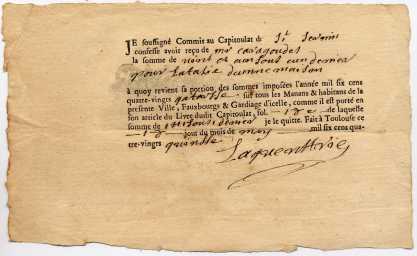 JE soussigné Commis au Capitoulat de St Sernin
confesse avoir reçu de mr
la somme de vint et un sous un denier
pour la taxe dunne maison
à quoy revient sa portion des sommes imposées l'année mil six cens
quatre-vingts quatorse sur tous les Manans & habitans de la
presente Ville, Fauxbourgs & Gardiage d'icelle, comme il est porté en
son article du Livre dudit Capitoulat, fol. de laquelle
somme de je le quitte. Fait à Toulouse ce
jour du mois de may mil six cens qua-
tre-vingts quinse